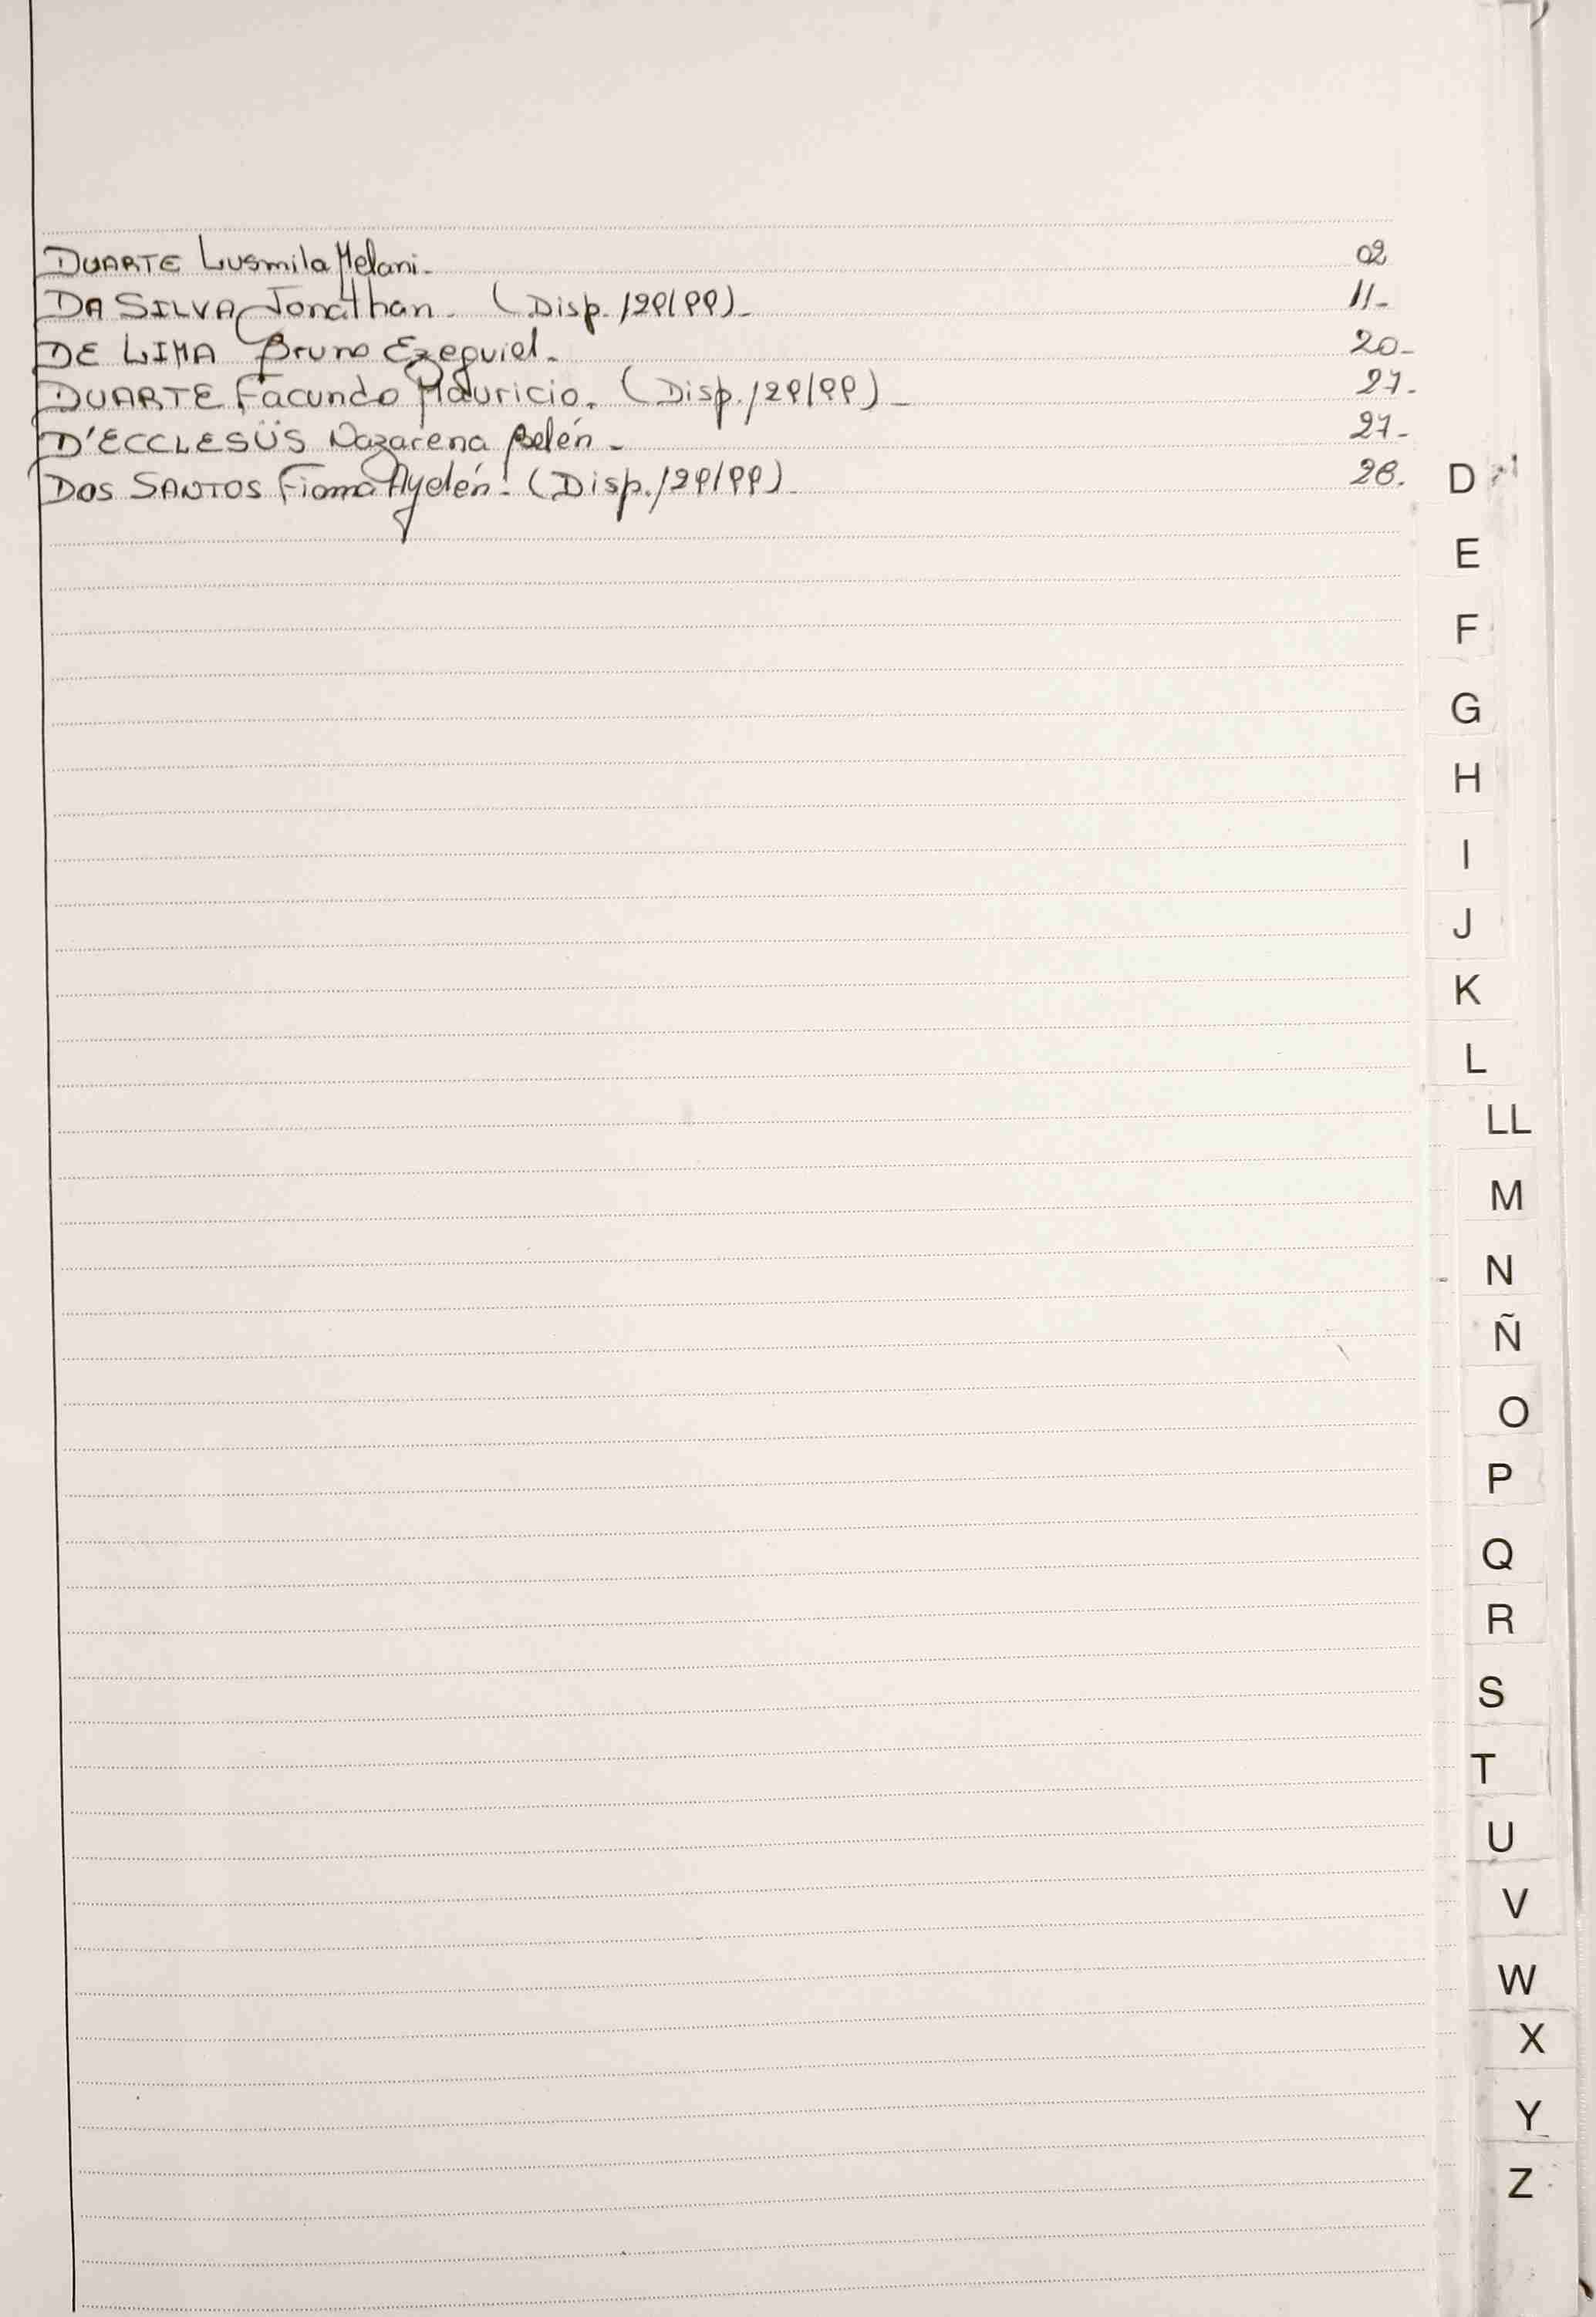 DUARTE Lusmila Melani. 02
DA SILVA Jonathan. (Disp. 129/99) 11-
DE LIMA Bruno Ezequiel. 20-
DUARTE Facundo Mauricio. (Disp. 129/99) 27-
D'ECCLESÜS Nazarena Belén. 27-
DOS SANTOS Fioma Aydén. (Disp. 129/99) 28.
D
E
F
G
H
I
J
K
L
LL
M
N
Ñ
O
P
Q
R
S
T
U
V
W
X
Y
Z